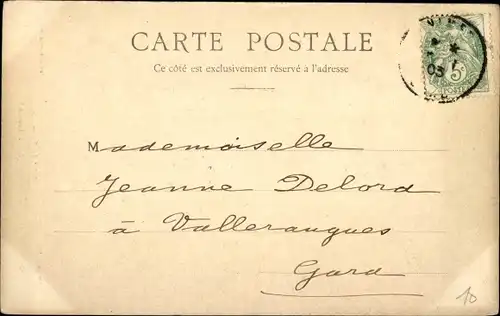 CARTE POSTALE
Ce côté est exclusivement réservé à l'adresse
Mademoiselle
Jeanne Delord
à Valleraugues
Gard
5
POSTES
03
10